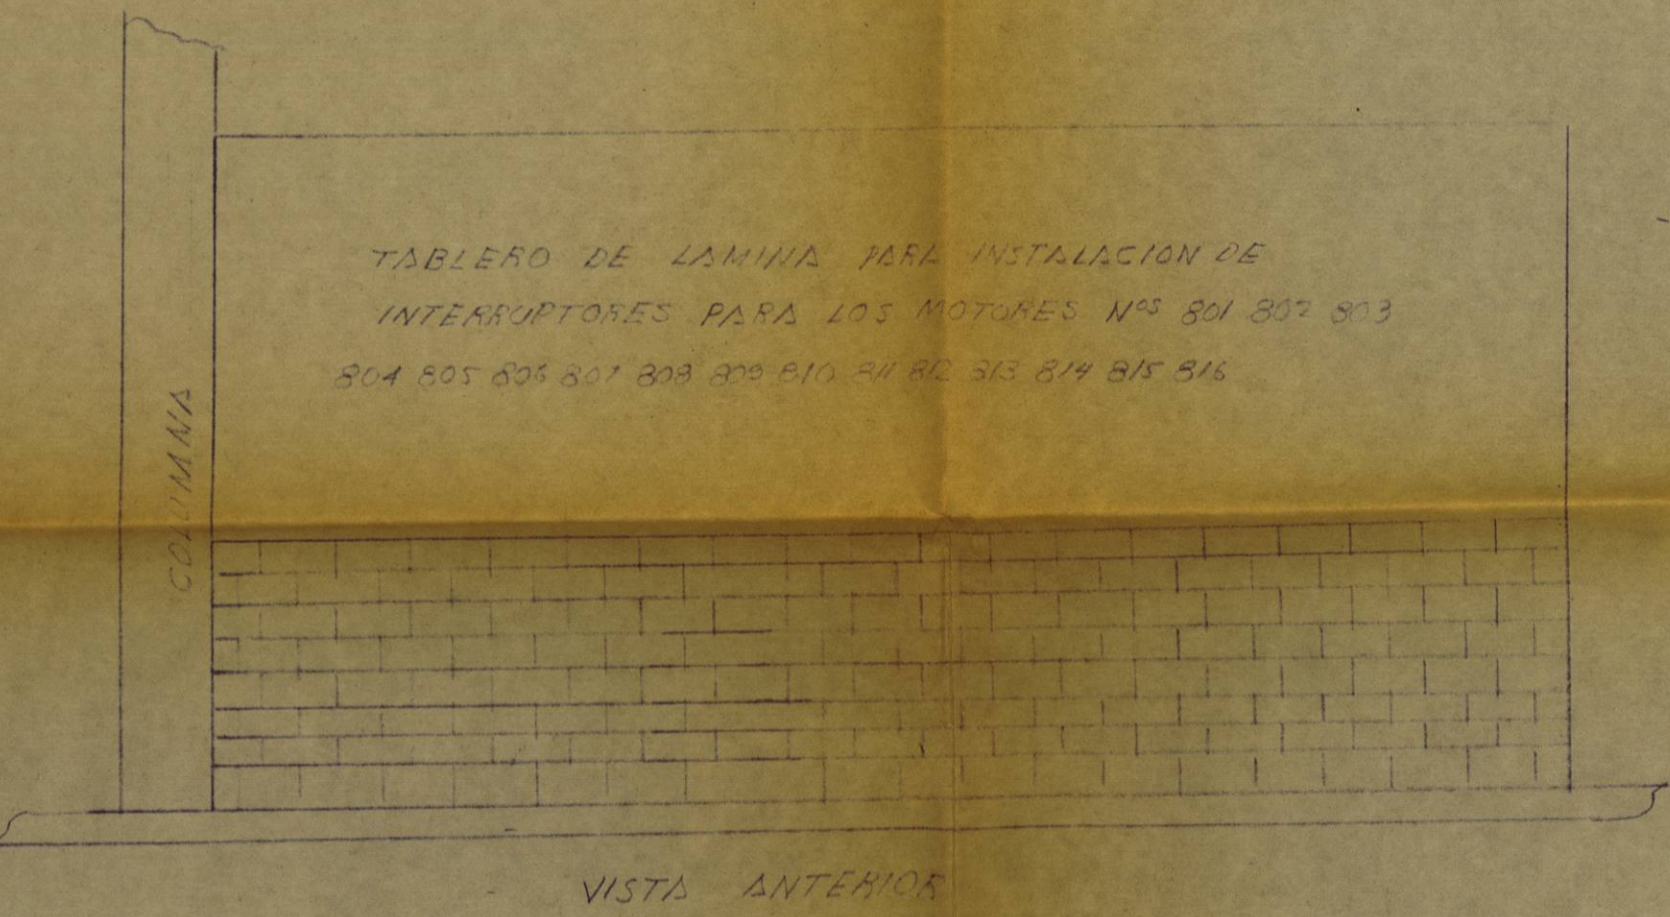 TABLERO DE LAMINA PARA INSTALACION DE
INTERRUPTORES PARA LOS MOTORES Nos 801 802 803
804 805 806 807 808 809 810 811 812 813 814 815 816
COLUMNA
VISTA ANTERIOR